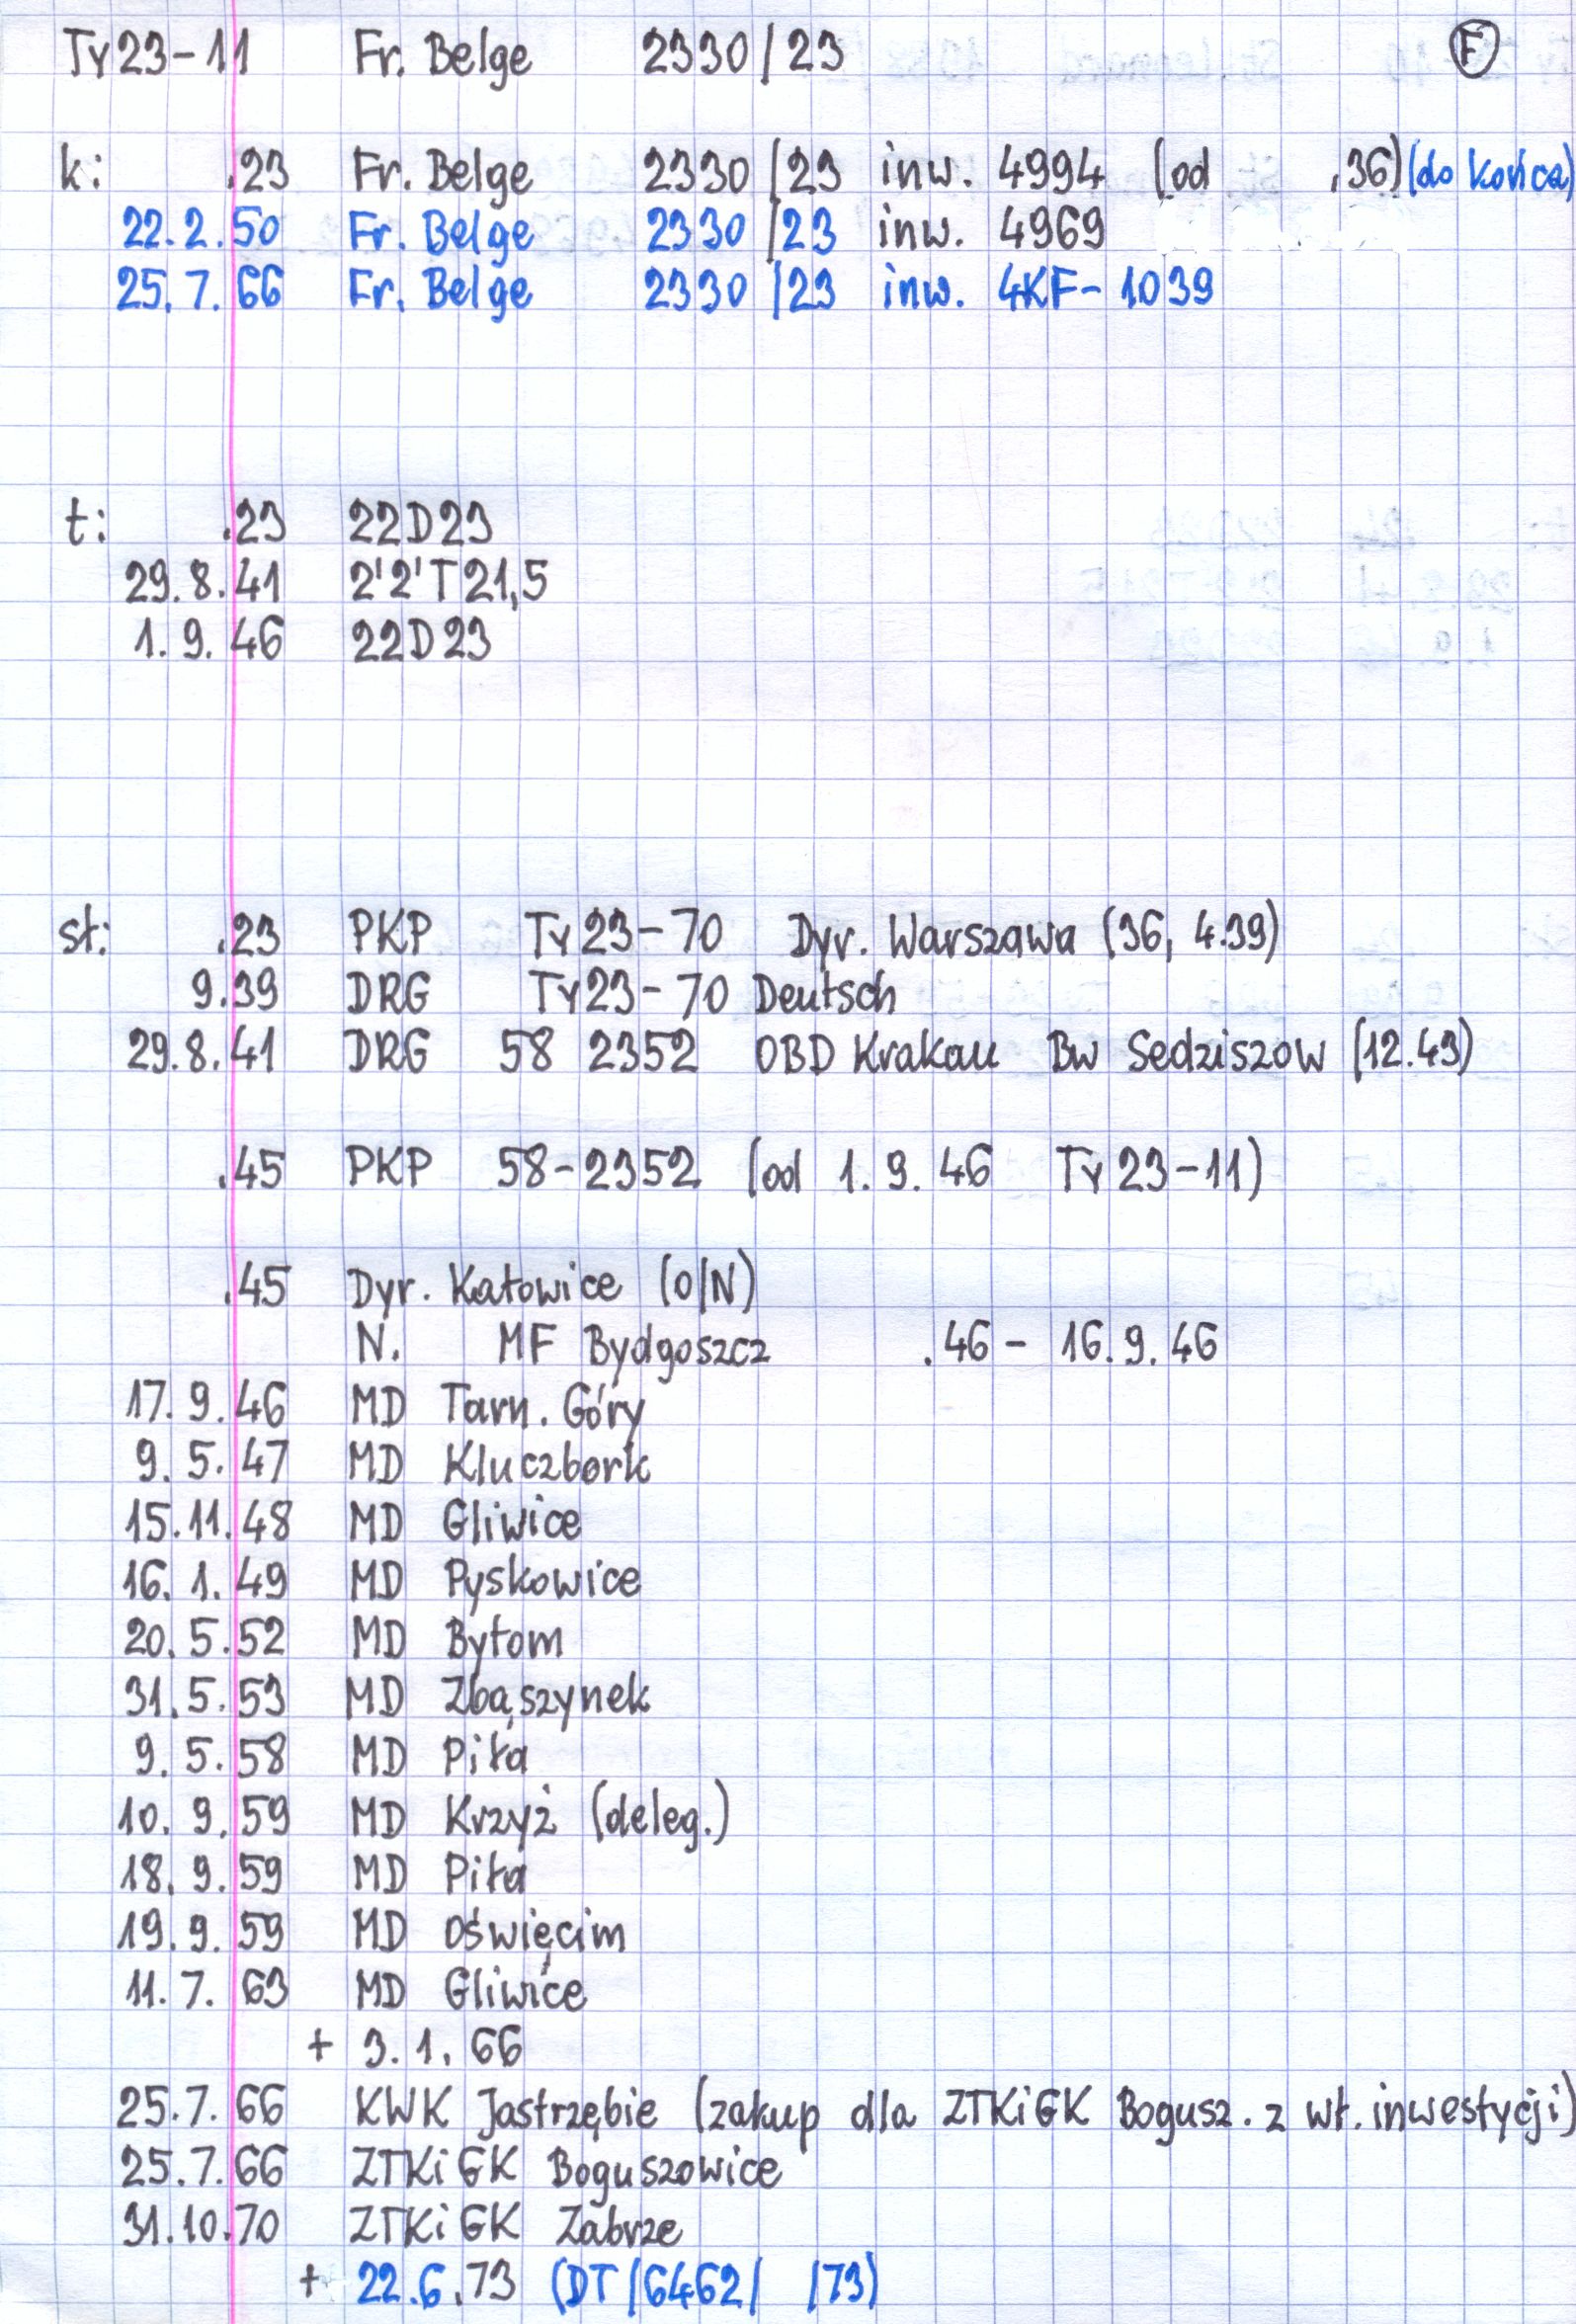 Ty23-11 Fr. Belge 2330/23 F
k: .23 Fr. Belge 2330/23 inw. 4994 (od .36)(do końca)
22.2.50 Fr. Belge 2330/23 inw. 4969
25.7.66 Fr. Belge 2330/23 inw. 4KF-1039
t: .23 22D23
29.8.41 2'2'T21,5
1.9.46 22D23
st: .23 PKP Ty23-70 Dyr. Warszawa (36, 4.39)
9.39 DRG Ty23-70 Deutsch
29.8.41 DRG 58 2352 OBD Krakau Bw Sedziszow (12.43)
.45 PKP 58-2352 (od 1.9.46 Ty23-11)
.45 Dyr. Katowice (O/N)
N. MF Bydgoszcz .46 - 16.9.46
17.9.46 MD Tarn. Góry
9.5.47 MD Kluczbork
15.11.48 MD Gliwice
16.1.49 MD Pyskowice
20.5.52 MD Bytom
31.5.53 MD Zbąszynek
9.5.58 MD Piła
10.9.59 MD Krzyż (deleg.)
18.9.59 MD Piła
19.9.59 MD Oświęcim
11.7.63 MD Gliwice
+ 3.1.66
25.7.66 KWK Jastrzębie (zakup dla ZTKiGK Bogusz. z wł. inwestycji)
25.7.66 ZTKiGK Boguszowice
31.10.70 ZTKiGK Zabrze
+ 22.6.73 (DT/6462/ /73)